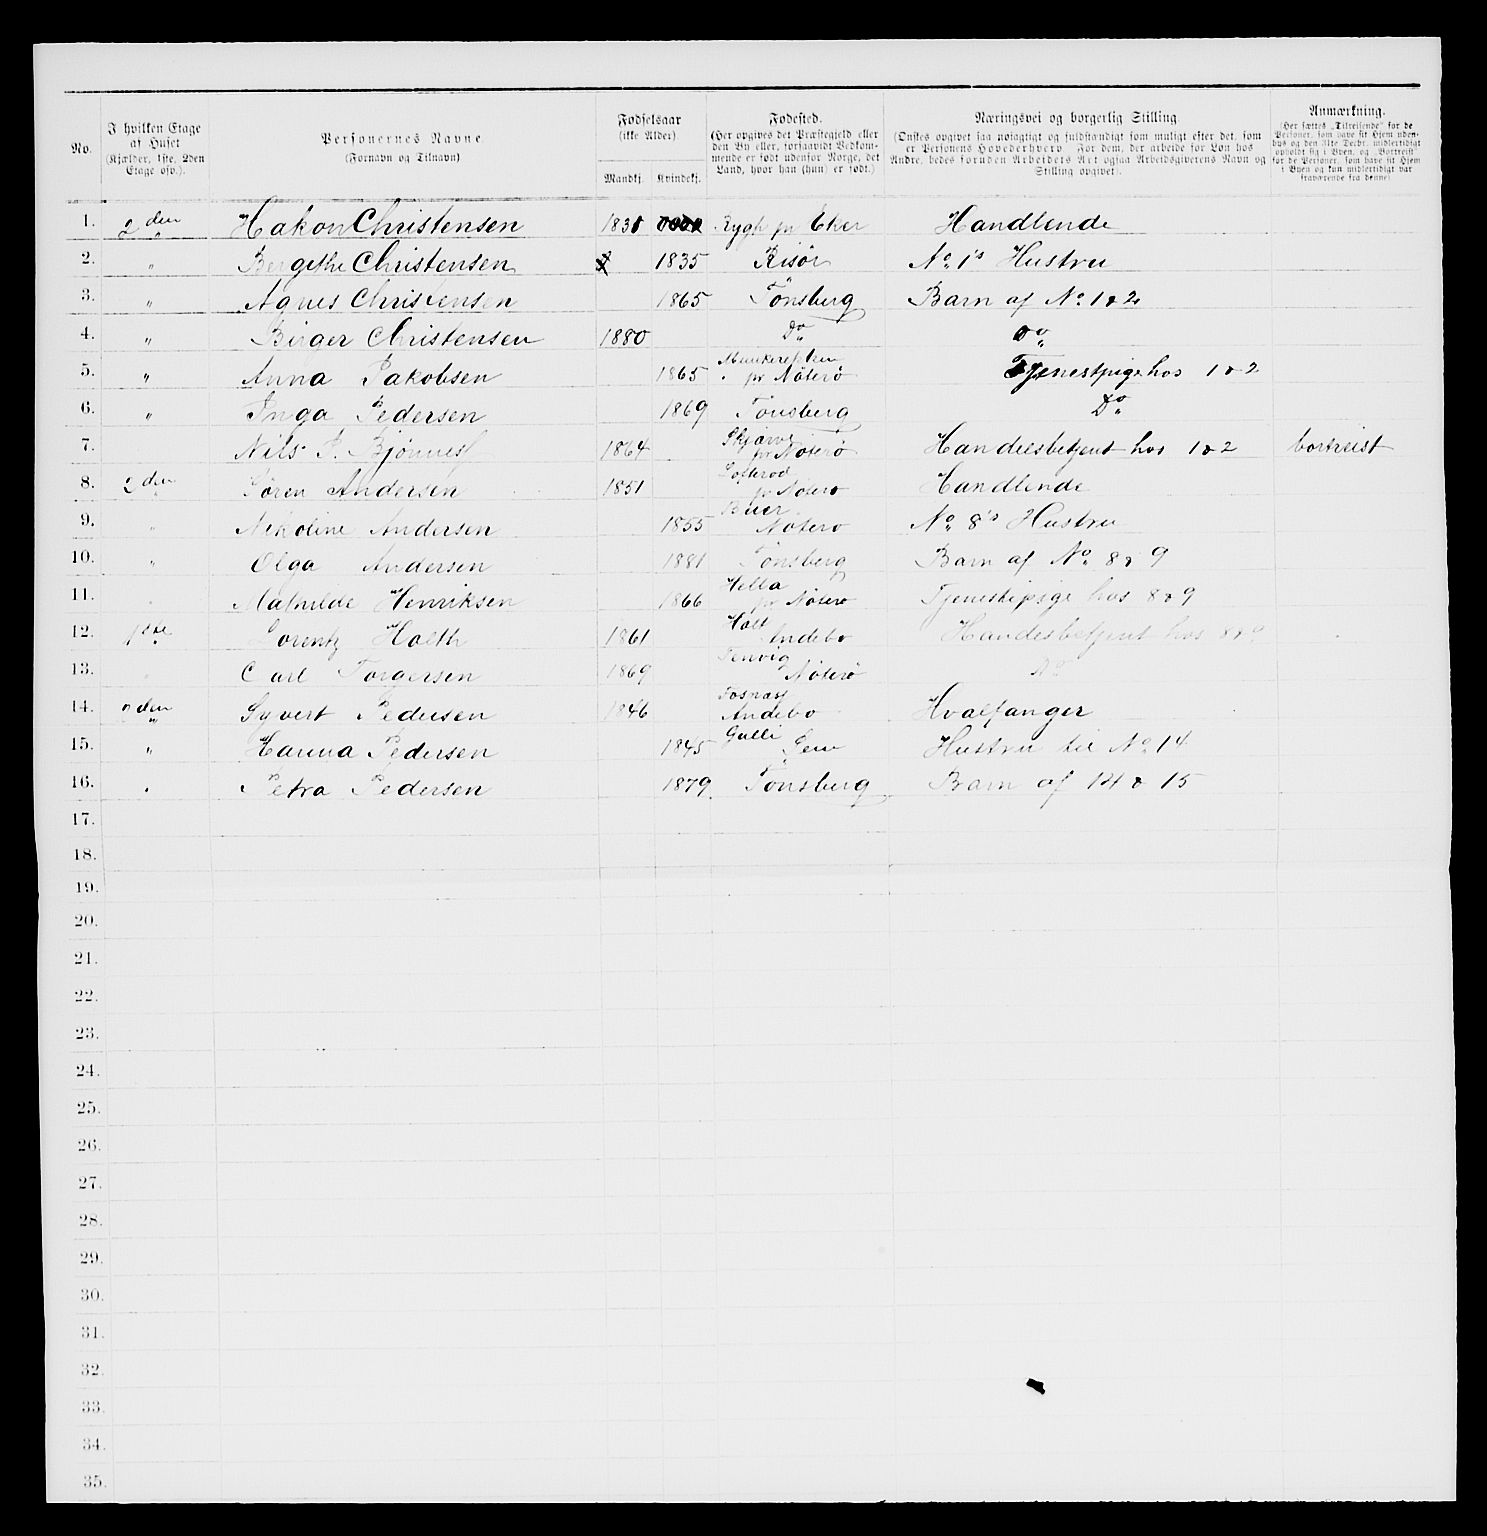 No.
I hvilken Etage
af Huset
(Kjælder, 1ste, 2den
Etage osv.).
Personernes Navne
(Fornavn og Tilnavn)
Fødselsaar
(ikke Alder).
Mandkj. Kvindekj.
Fødested.
(Her opgives det Præstegjeld eller
den By eller, forsaavidt Vedkom-
mende er født udenfor Norge, det
Land, hvor han (hun) er født.)
Næringsvei og borgerlig Stilling
(Ønskes opgivet saa nøiagtigt og fuldstændigt som muligt efter det, som
er Personens Hovederhverv For dem, der arbeide for Løn hos
Andre, bedes foruden Arbeidets Art ogsaa Arbeidsgiverens Navn og
Stilling opgivet).
Anmærkning.
(Her sættes „Tilreisende“ for de
Personer, som have sit Hjem uden-
bys og den 31te Decbr. midlertidigt
opholdt sig i Byen, og "Bortreist"
for de Personer, som have sit Hjem
i Byen og kun midlertidigt var
fraværende fra denne)
1. 2den Hakon Christensen 1831 Rygh pr Eker Handlende
2. " Bergethe Christensen 1835 Risör No 1's Hustru
3. " Agnes Christensen 1865 Tönsberg Barn af No 1 & 2
4. " Birger Christensen 1880 Do Do
5. " Anna Jakobsen 1865 pr Nöterö Tjenestpige hos 1 & 2
6. " Inga Pedersen 1869 Tönsberg Do
7. Nils P. Bjönnes 1864 pr Nöterö Handelsbetjent hos 1 & 2 bortreist
8. 2den Sören Andersen 1851 pr Nöterö Handlende
9. " Nikoline Andersen 1855 Nöterö No 8's Hustru
10. " Olga Andersen 1881 Tönsberg Barn af No 8 & 9
11. Mathilde Henriksen 1866 Hella pr Nöterö Tjenestepige hos 8 & 9
12. 1ste Lorentz Holth 1861 Holt Andebo Handesbetjent hos 8 & 9
13. Carl Torgersen 1869 Tenvig Nöterö Do
14. 2den Syvert Pedersen 1846 Andebo Hvalfanger
15. " Hanna Pedersen 1845 Gulli Sem Hustru til No 14
16. Petra Pedersen 1879 Tönsberg Barn af 14 & 15
17.
18.
19.
20.
21.
22.
23.
24.
25.
26.
27.
28.
29.
30.
31.
32.
33.
34.
35.